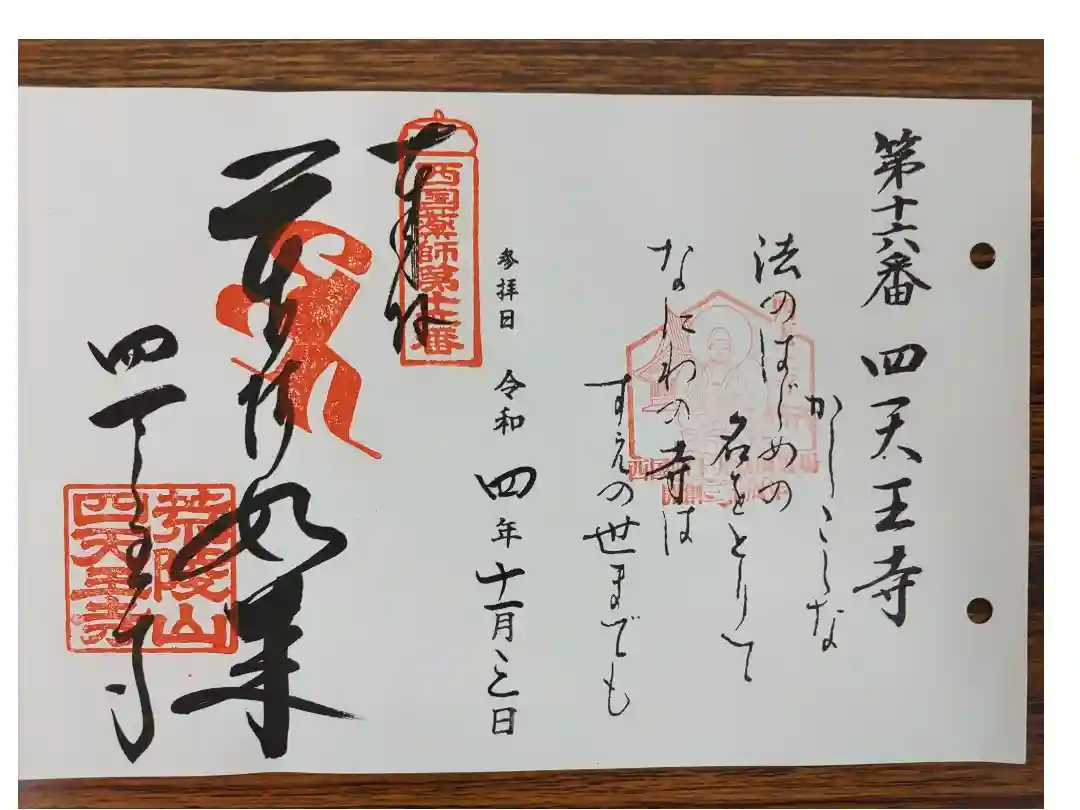 第十六番 四天王寺
かしこしな
法のはじめの
名をとりて
なにわの寺は
すゑの世までも
参拝日 令和 四年 十一月三日
奉拝
西国薬師第十六番
薬師如来
四天王寺
荒陵山
四天王寺